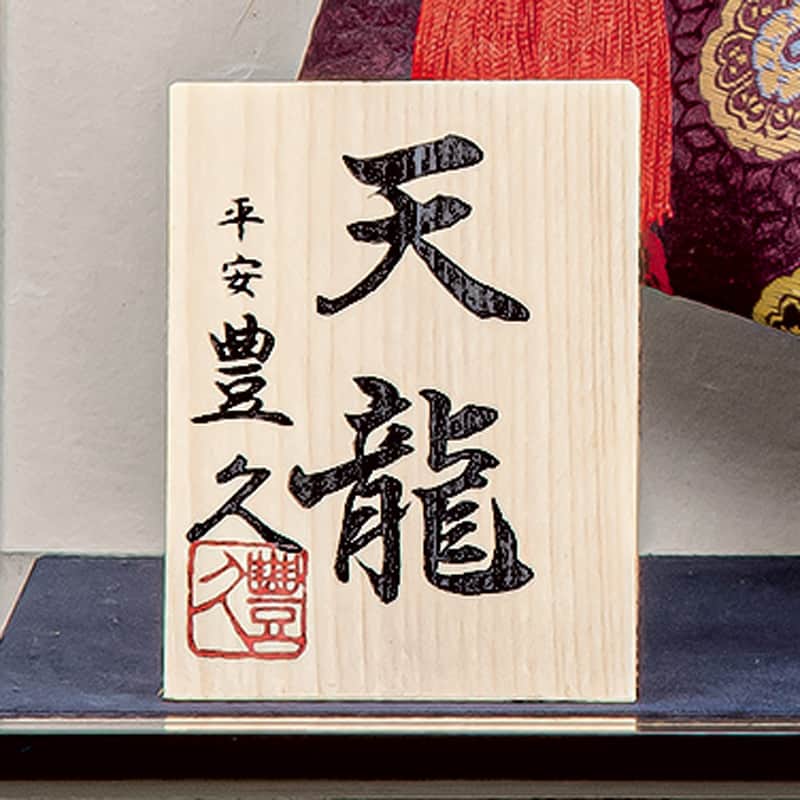 天龍
平安豊久
豊久